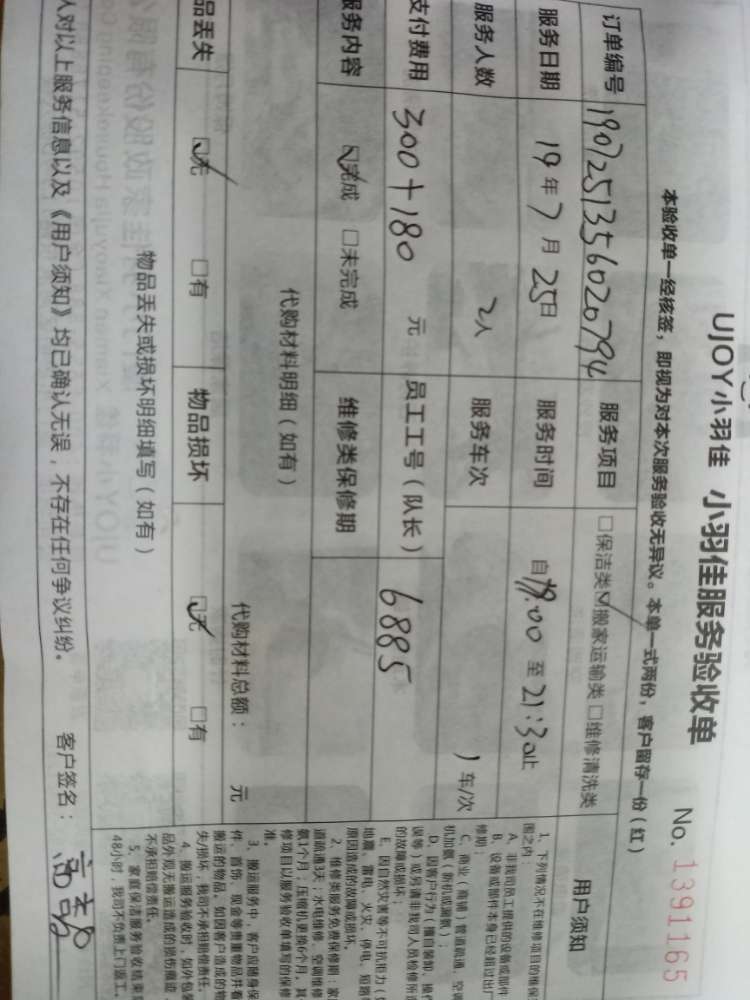 UJOY小羽佳 小羽佳服务验收单
No. 1391165
本验收单一经核签，即视为对本次服务验收无异议。本单一式两份，客户留存一份（红）
订单编号 190725135602079​4 服务项目 □保洁类☑搬家运输类□维修清洗类
服务日期 19年7月25日 服务时间 自19:00至21:30止
服务人数 2人 服务车次 1车/次
支付费用 300+180 元 员工工号（队长） 6885
服务内容 ☑完成 □未完成 维修类保修期
代购材料明细（如有） 代购材料总额： 元
品丢失 ☑无 □有 物品损坏 ☑无 □有
物品丢失或损坏明细填写（如有）
人对以上服务信息以及《用户须知》均已确认无误，不存在任何争议纠纷。 客户签名：
用户须知
1、下列情况不在维修项目的维保
围之内：
A、非我司员工提供的设备或部件
B、设备或部件本身已经超过出厂
修期；
C、商业（商铺）管道疏通、空调
机加氨（新机或漏氨）；
D、因客户行为（擅自装卸、操作
误等）或另请非我司人员检修所造
的故障或损坏；
E、因自然灾害等不可抗拒力（如
地震、雷电、火灾、停电、短路等
原因造成的故障或损坏。
2、维修类服务免费保修期：家
道疏通3天；水电维修、空调维修
氨1个月；压缩机更换6个月。其
修项目以服务验收单填写的保修
准。
3、搬运服务中，客户应随身保
件、首饰、现金等贵重物品并看
搬运的物品。如因客户造成的物
失/损坏，我司不承担赔偿责任。
4、搬运服务验收时，如外包装
品外观无搬运造成的损伤痕迹
不承担赔偿责任。
5、家庭保洁服务验收结束后
48小时，我司不负责上门返工。